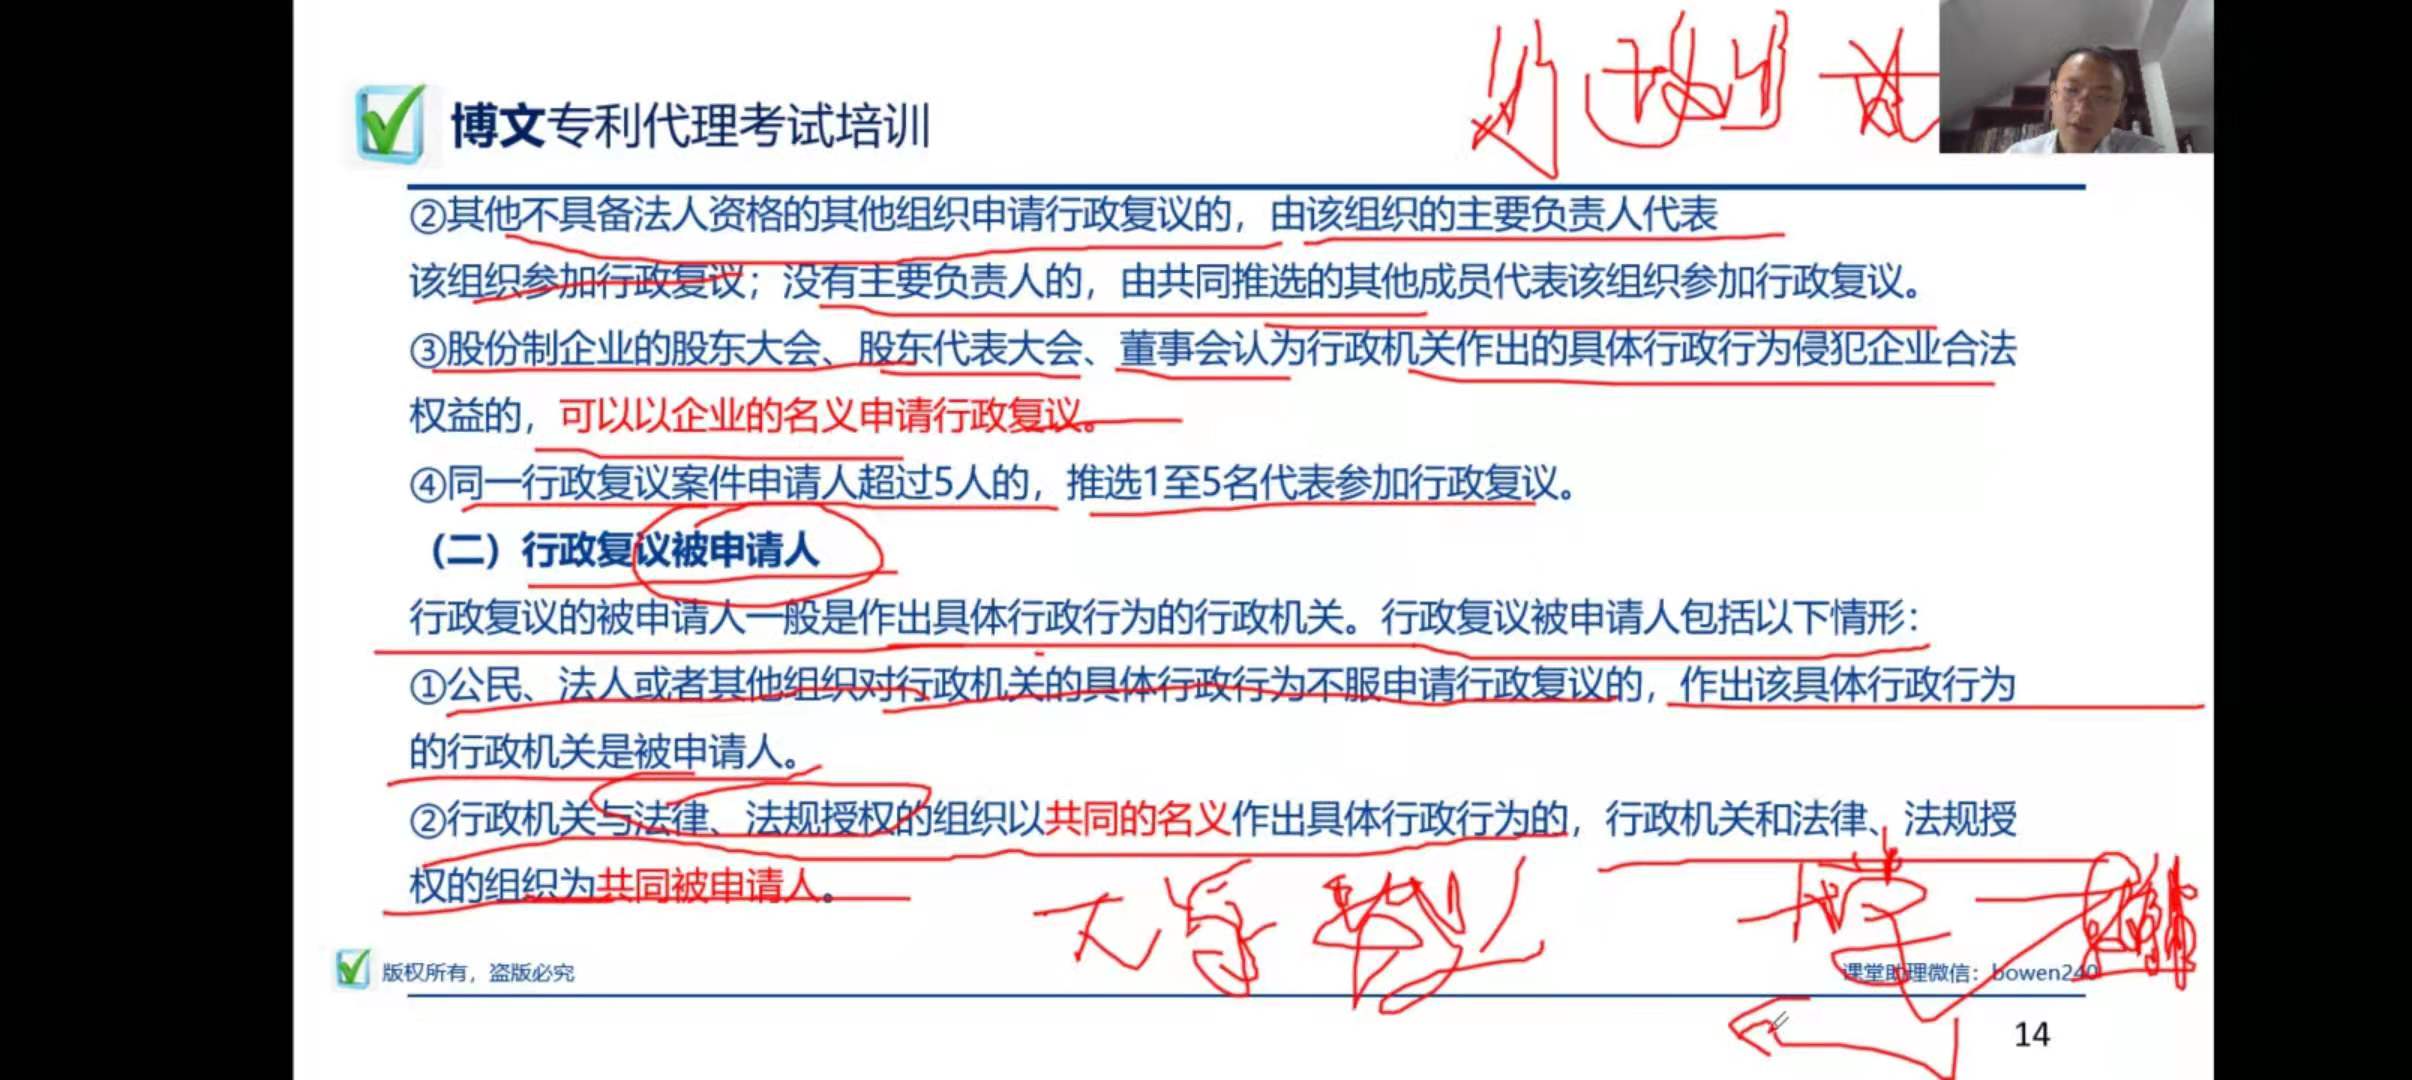 博文专利代理考试培训
②其他不具备法人资格的其他组织申请行政复议的，由该组织的主要负责人代表
该组织参加行政复议；没有主要负责人的，由共同推选的其他成员代表该组织参加行政复议。
③股份制企业的股东大会、股东代表大会、董事会认为行政机关作出的具体行政行为侵犯企业合法
权益的，可以以企业的名义申请行政复议。
④同一行政复议案件申请人超过5人的，推选1至5名代表参加行政复议。
（二）行政复议被申请人
行政复议的被申请人一般是作出具体行政行为的行政机关。行政复议被申请人包括以下情形：
①公民、法人或者其他组织对行政机关的具体行政行为不服申请行政复议的，作出该具体行政行为
的行政机关是被申请人。
②行政机关与法律、法规授权的组织以共同的名义作出具体行政行为的，行政机关和法律、法规授
权的组织为共同被申请人。
版权所有，盗版必究
课堂助理微信：bowen240
14